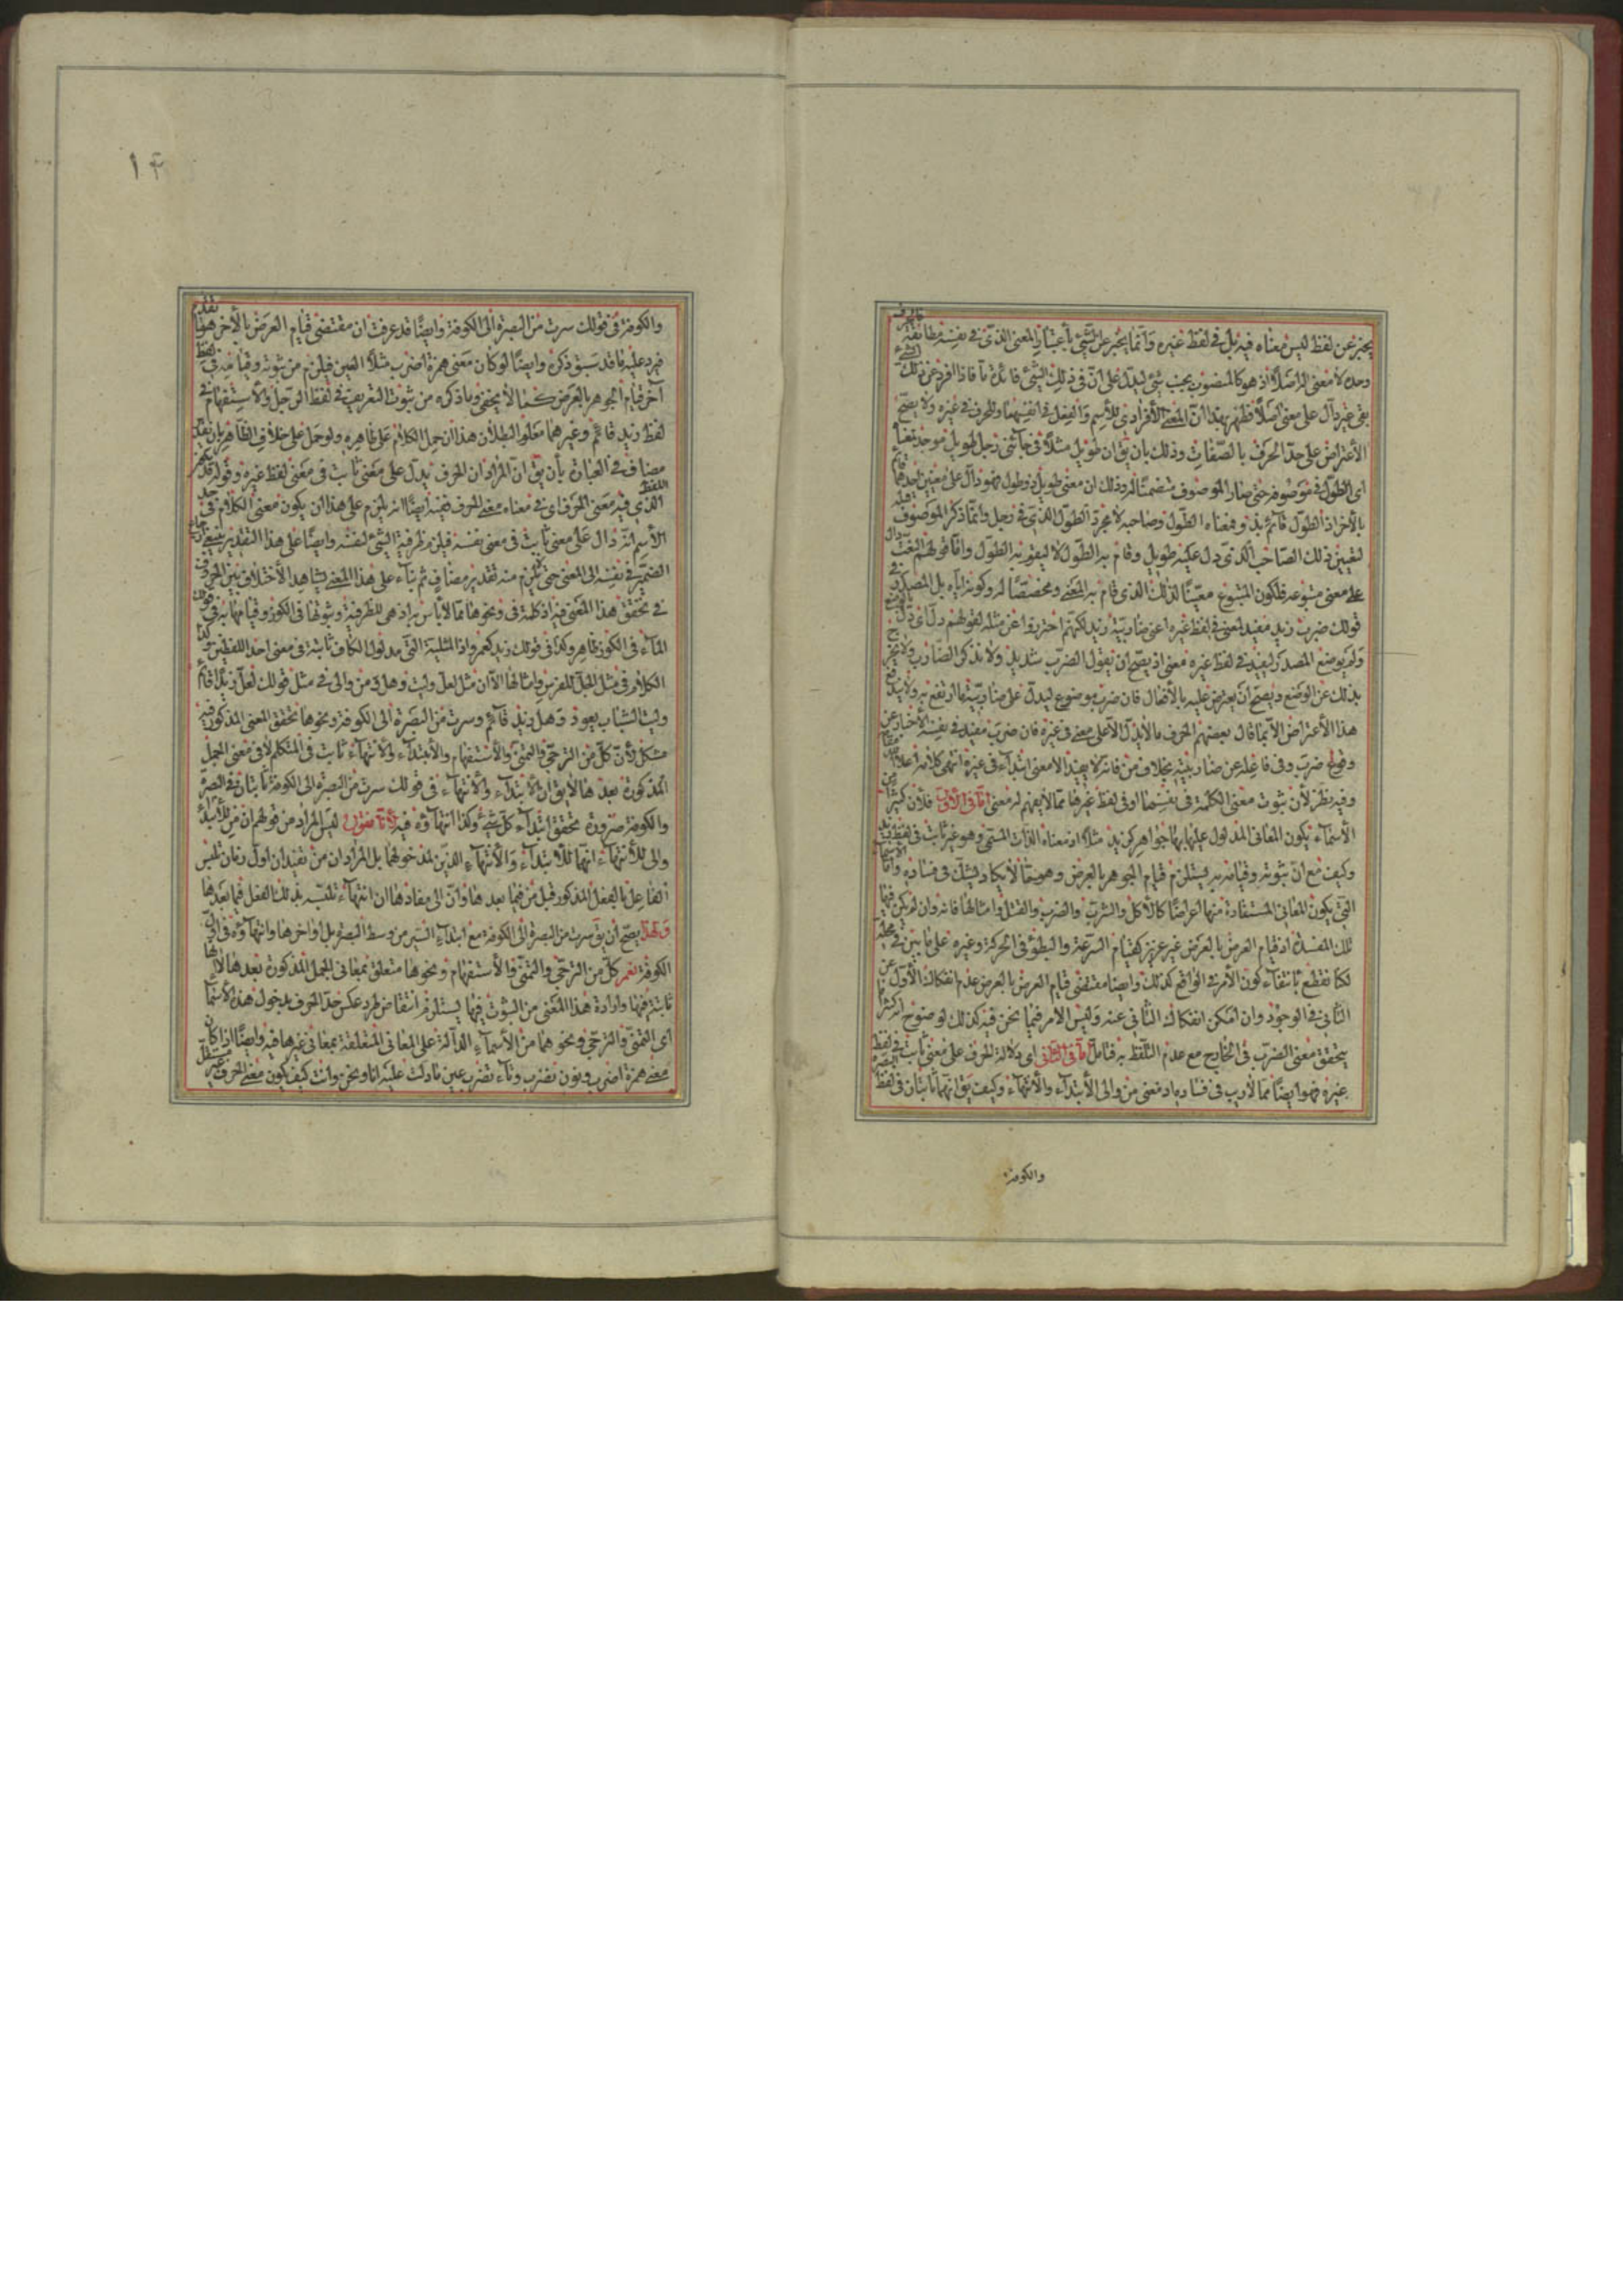 يخبر عن لفظ ليس معناه فيه بل في لفظ غيره وانما يخبر عن الشئ باعتبار المعنى الذى في نفسه مطابقة
وحده لا معنى له اصلا اذ هو كالمنصوب بجنب شئ ليدل على ان في ذلك الشئ فائدة ما فاذا افرد عن ذلك
بقى غير دال على معنى اصلا فظهر بهذا ان المعنى الافرادى للاسم والفعل في انفسهما وللحرف في غيره ولا يصح
الاعتراض على حد الحرف بالصفات وذلك بان يق ان طويل مثلا في جائنى رجل طويل موجد معناه
اى الطول في موصوفه حتى صار الموصوف متضمنا له وذلك ان معنى طويل ذو طول فهو دال على معنيين احدهما
بالاخر اذ الطول قائم بذو ومعناه الطول وصاحبه لا مجرد الطول الذى في رجل وانما ذكر الموصوف
لتعيين ذلك الصاحب الذى دل عليه طويل وقام به الطول لا ليقوم به الطول واما قولهم النعت دال
على معنى متبوعه فلكون المتبوع معينا لذلك الذى قام به المعنى ومخصصا له وكونه اياه بل المصدر في
قولك ضرب زيد مفيد لمعنى في لفظ غيره اعنى ضاربية زيد لكنهم احترزوا عن مثله لقولهم دل اى دل
ولم يوضع المصدر ليفيد في لفظ غيره معنى اذ يصح ان يقول الضرب شديد ولا يذكر الضارب ولا يخرج
بذلك عن الوضع ويصح ان يعترض عليه بالافعال فان ضرب موضوع ليدل على ضاربية ما ارتفع به ولا يدفع
هذا الاعتراض الا بما قال بعضهم الحرف ما لا يدل الا على معنى في غيره فان ضرب مفيد في نفسه الاخبار عن
وقوع ضرب وفي فاعله عن ضاربيته بخلاف من فانه لا يفيد الا معنى ابتداء في غيره انتهى كلامه
وفيه نظر لان ثبوت معنى الكلمة في نفسها او في لفظ غيرها مما لا يفهم له معنى اما في الاول فلان كثيرا من
الاسماء يكون المعانى المدلول عليها بها جواهر كزيد مثلا اذ معناه الذات المسمى وهو غير ثابت في لفظ زيد
وكيف مع ان ثبوته وقيامه به يستلزم قيام الجوهر بالعرض وهو مما لا يكاد يشك في فساده واما الاسماء
التى يكون المعانى المستفادة منها اعراضا كالاكل والشرب والضرب والقتل وامثالها فانه وان لم يكن فيها
تلك المفسدة اذ قيام العرض بالعرض غير عزيز كقيام السرعة والبطؤ في الحركة وغيره على ما بين في محله
لكنا نقطع بانتفاء كون الامر في الواقع كذلك وايضا مقتضى قيام العرض بالعرض عدم انفكاك الاول عن
الثانى في الوجود وان امكن انفكاك الثانى عنه وليس الامر فيما نحن فيه كذلك لوضوح
يتحقق معنى الضرب في الخارج مع عدم التلفظ به فتامل واما في الثانى اى دلالة الحرف على معنى ثابت في لفظ
غيره فهو ايضا مما لا ريب في فساده اذ معنى من والى الابتداء والانتهاء وكيف يق انهما ثابتان في لفظ
والكوفة
١٤
والكوفة في قولك سرت من البصرة الى الكوفة وايضا قد عرفت ان مقتضى قيام العرض بالاخر هو ما تقدم
فيرد عليه ما قد سبق ذكره وايضا لو كان معنى همزة اضرب مثلا العين فيلزم من ثبوته وقيامه في لفظ
آخر قيام الجوهر بالعرض كما لا يخفى وما ذكره من ثبوت التعريف في لفظ الرجل والاستفهام في
لفظ زيد قائم وغيرهما معلوم البطلان هذا ان حمل الكلام على ظاهره ولو حمل على خلاف الظاهر بان يقدر
مضاف في العبارة بأن يق ان المراد ان الحرف يدل على معنى ثابت في معنى لفظ غيره وقوله
الذى فيه معنى الحرف اى في معناه معنى الحرف ففيه ايضا انه يلزم على هذا ان يكون معنى الكلام في حد
الاسم انه دال على معنى ثابت في معنى نفسه فيلزم ظرفية الشئ لنفسه وايضا على هذا التقدير
الضمير في نفسه الى المعنى حتى يلزم منه تقدير مضاف ثم بناء على هذا المعنى يشاهد الاختلاف بين الحروف
في تحقق هذا المعنى فيه اذ كلمة في ونحوها مما لا باس به اذ هى للظرفية وثبوتها في الكوز وقيامها به في قولك
الماء في الكوز ظاهر وكذا في قولك زيد كعمرو اذا المثلية التى مدلول الكاف ثابتة في معنى احد اللفظين وكذا
الكلام في مثل الجل للفرس وامثالها الا ان مثل لعل وليت وهل ومن والى في مثل قولك لعل زيدا قائم
وليت الشباب يعود وهل زيد قائم وسرت من البصرة الى الكوفة ونحوها تحقق المعنى المذكور فيه
مشكل لان كل من الترجى والتمنى والاستفهام والابتداء والانتهاء ثابت في المتكلم لا في معنى الجمل
المذكورة بعدها لا يق ان الابتداء والانتهاء في قولك سرت من البصرة الى الكوفة ثابتان في البصرة
والكوفة ضرورة تحقق ابتداء كل شئ وكذا انتهاؤه فيه لانا نقول ليس المراد من قولهم ان من للابتداء
والى للانتهاء انها للابتداء والانتهاء الذين لمدخولهما بل المراد ان من تفيد ان اول زمان تلبس
الفاعل بالفعل المذكور قبل من فيما بعدها وان الى مفادها ان انتهاء تلبسه بذلك الفعل فيما بعدها
ولهذا يصح ان يق سرت من البصرة الى الكوفة مع ابتداء السير من وسط البصرة بل اواخرها وانتهاؤه في اوائل
الكوفة نعم كل من الترجى والتمنى والاستفهام ونحوها متعلق بمعانى الجمل المذكورة بعدها لا انها
ثابتة فيها وارادة هذا المعنى من الثبوت فيها يستلزم انتقاض طرد عكس حد الحرف بدخول هذه الاسماء
اى التمنى والترجى ونحوهما من الاسماء الدالة على المعانى المتعلقة بمعانى غيرها فيه وايضا اذا كان
معنى همزة اضرب ونون نضرب وتاء تضرب عين ما دلت عليه انا ونحن وانت كيف يكون معنى الحرف غير مستقل